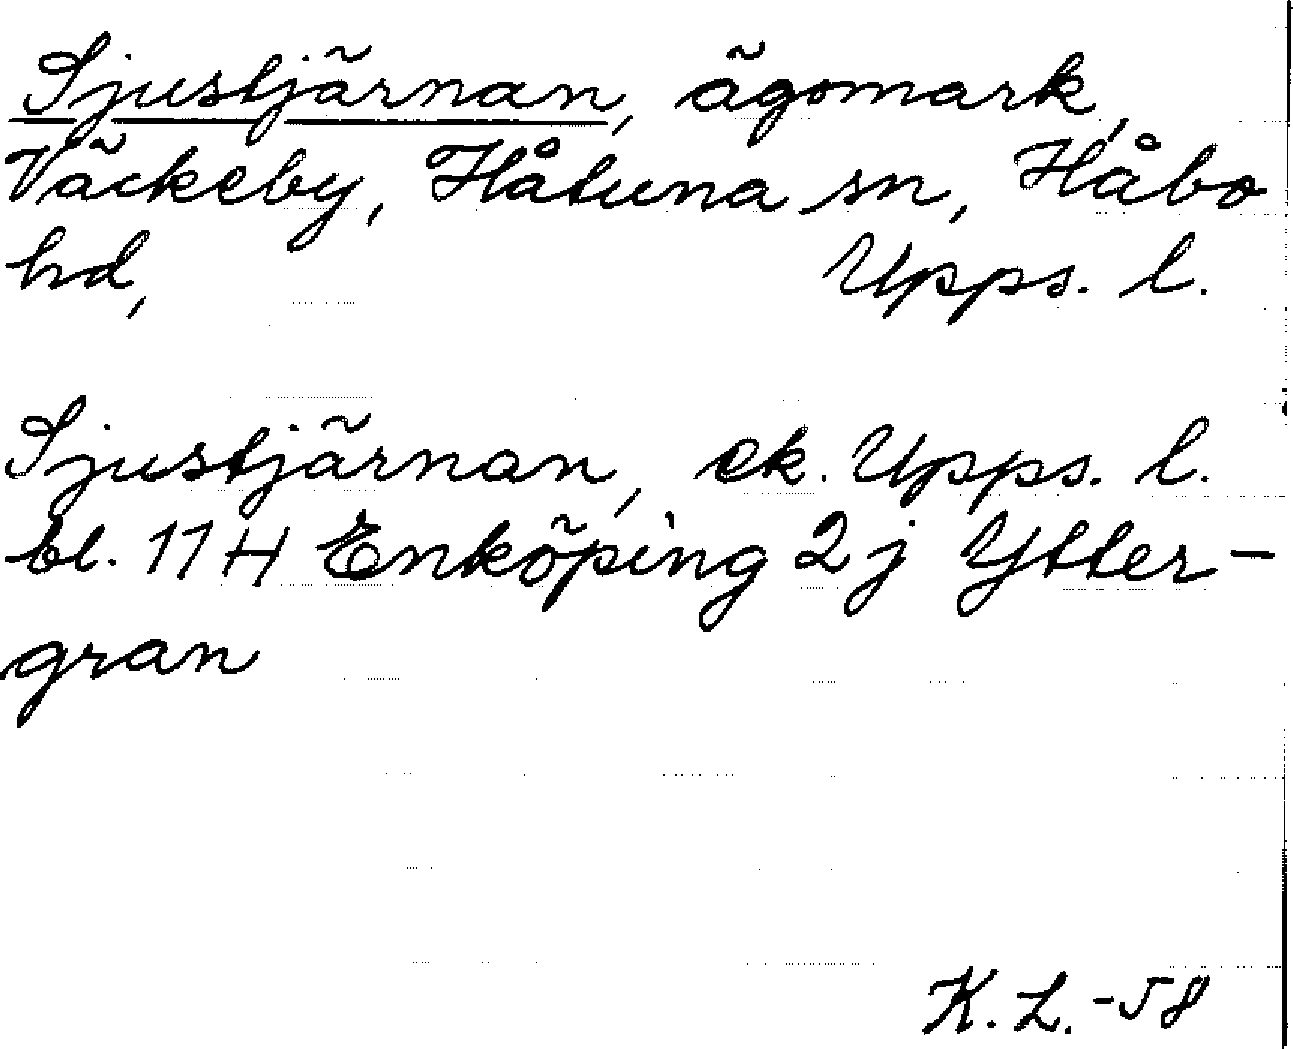 Sjustjärnan, ägomark,
Väckeby, Håtuna sn, Håbo
hd, Upps. l.
Sjustjärnan, ek. Upps. l.
bl. 11 H Enköping 2 j Ytter-
gran
K. L. -58